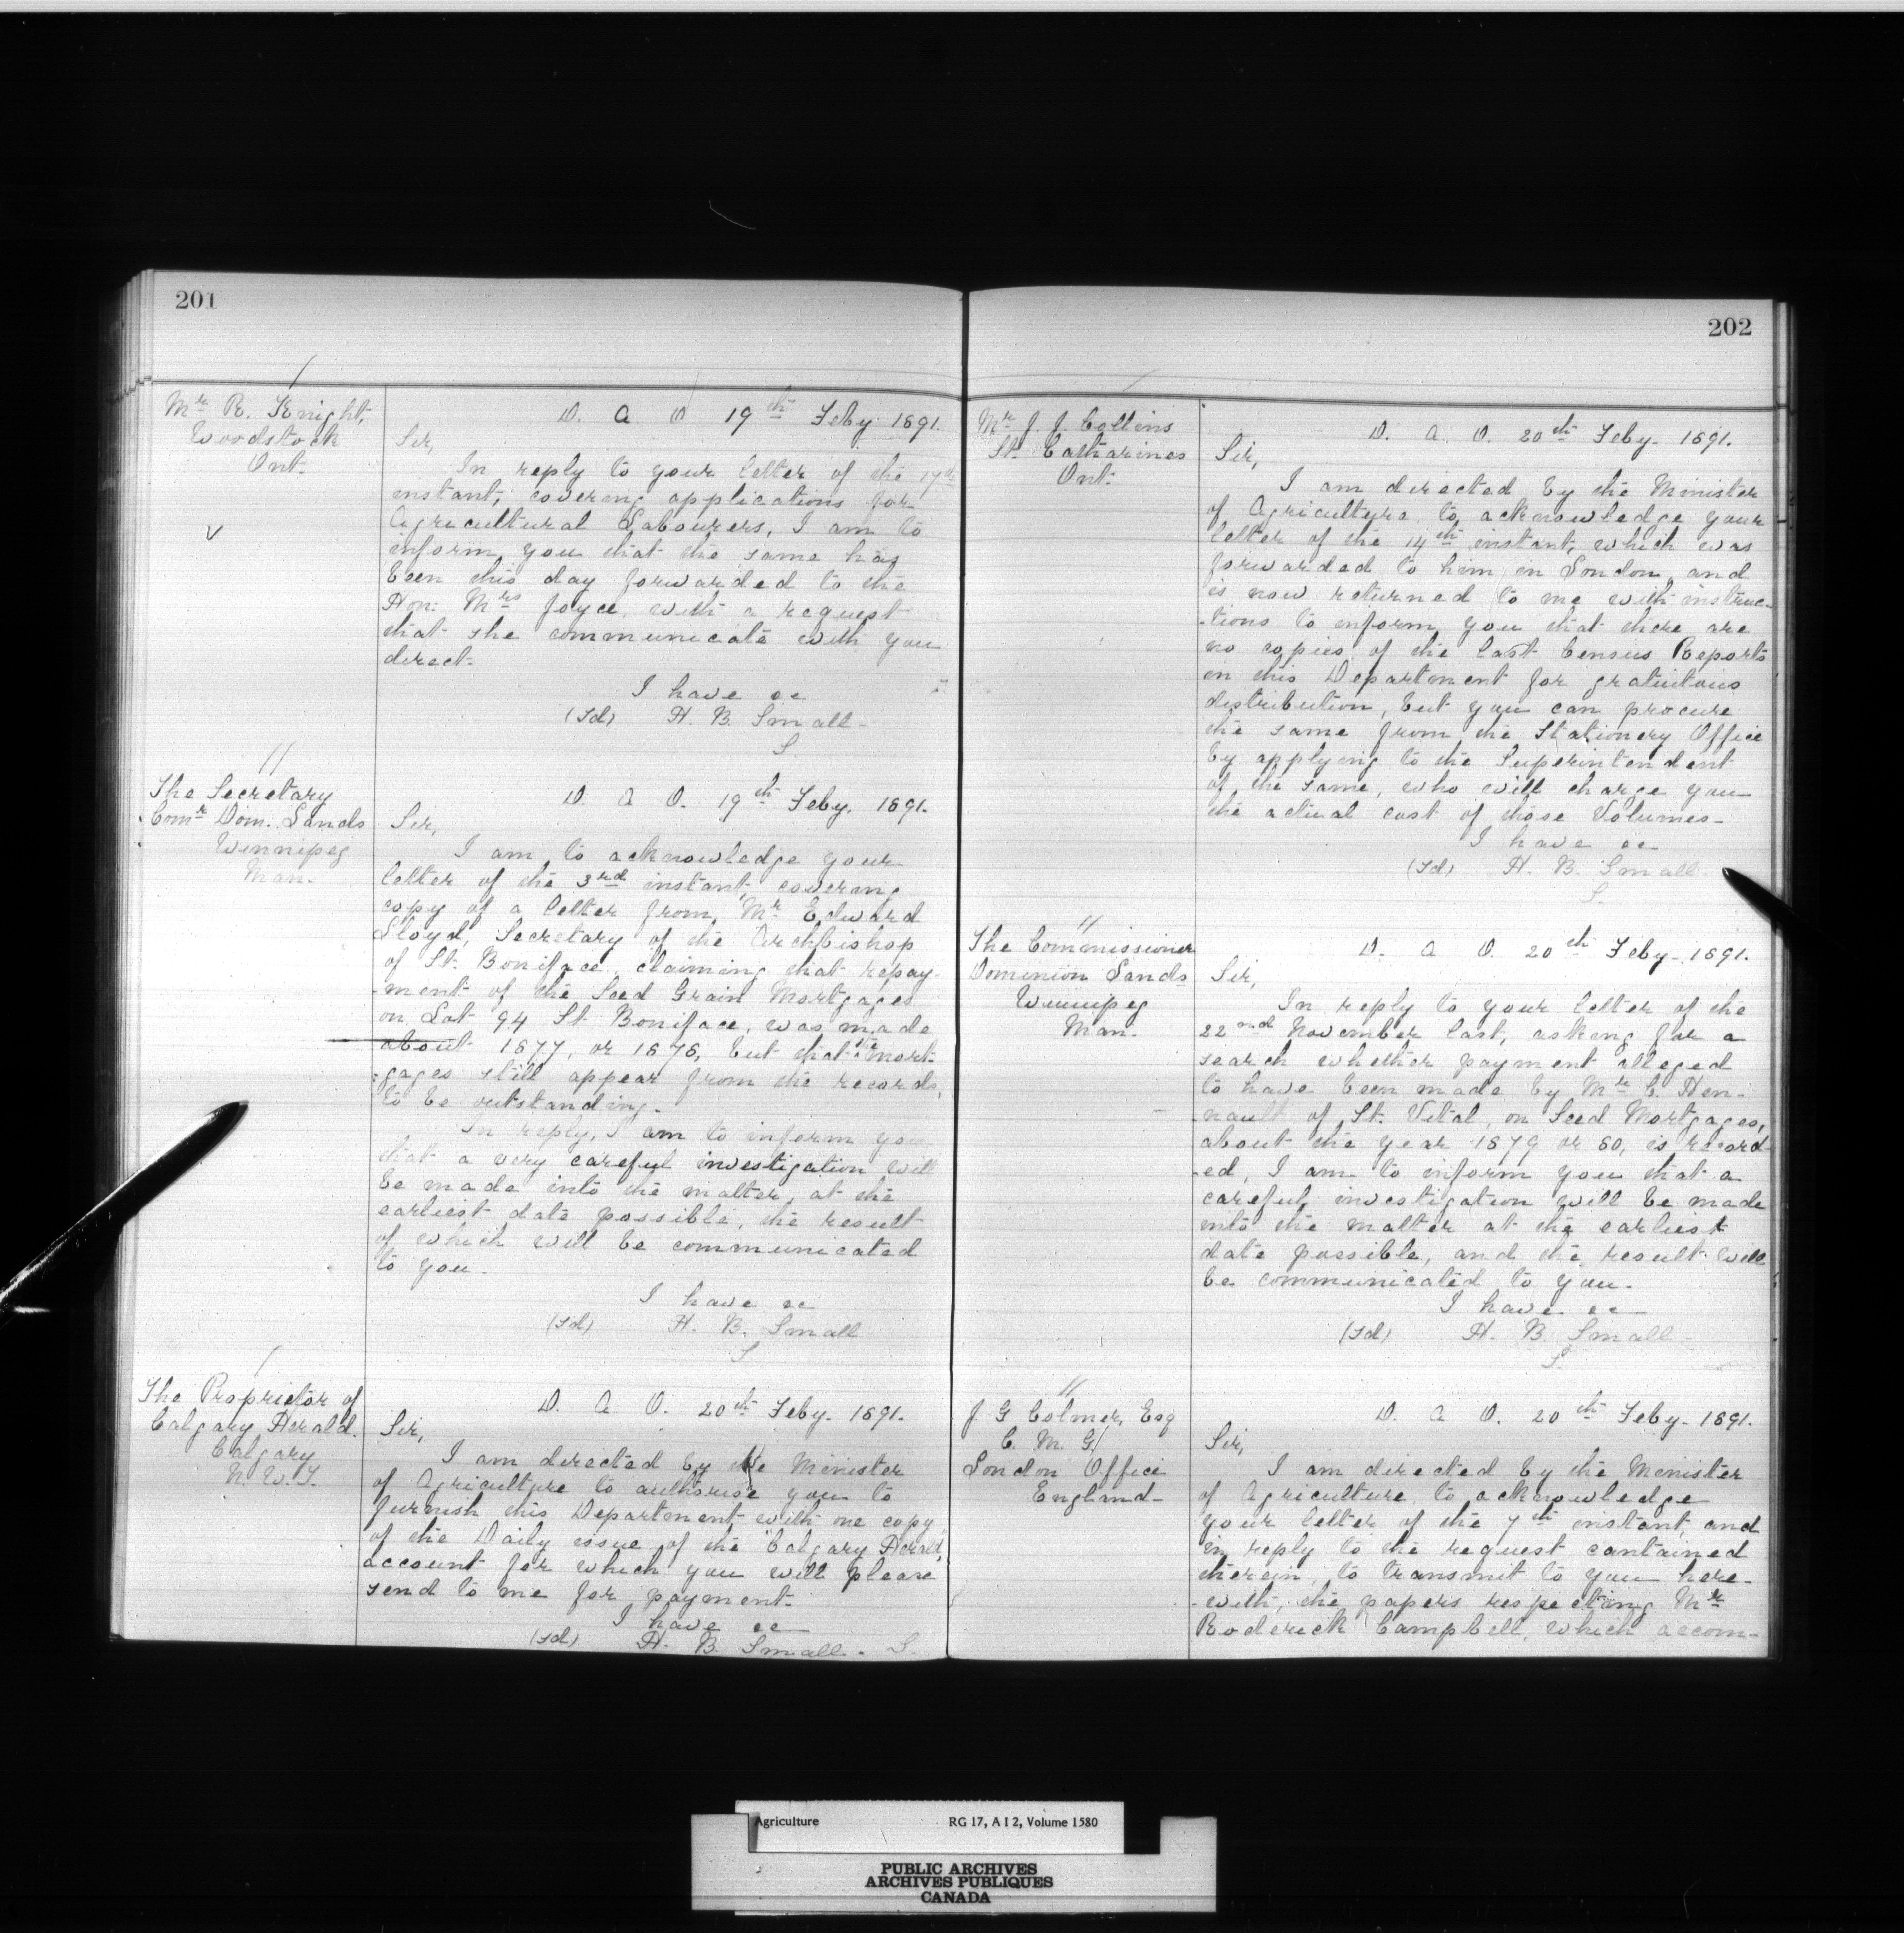 201
Mr R. Knight,
Woodstock
Ont.
D. A. O 19th Feby 1891.
Sir,
In reply to your letter of the 17th
instant, covering applications for
Agricultural Labourers, I am to
inform you that the same has
been this day forwarded to the
Hon: Mrs Joyce, with a request
that she communicate with you
direct.
I have &c
(sd) H. B. Small
S.
The Secretary
Comr Dom. Lands
Winnipeg
Man.
D. A. O. 19th Feby. 1891.
Sir,
I am to acknowledge your
letter of the 3rd instant, covering
copy of a letter from Mr Edward
Lloyd, Secretary of the Archbishop
of St. Boniface, claiming that repay-
-ment of the Seed Grain Mortgages
on Lot 94 St Boniface, was made
about 1877, or 1878, but that the mort-
gages still appear from the records,
to be outstanding.
In reply, I am to inform you
that a very careful investigation will
be made into the matter, at the
earliest date possible, the result
of which will be communicated
to you.
I have &c
(sd) H. B. Small
S
The Proprietor of
Calgary Herald.
Calgary
N. W. T.
D. A. O. 20th Feby. 1891.
Sir,
I am directed by the Minister
of Agriculture to authorise you to
furnish this Department with one copy
of the Daily issue of the "Calgary Herald,"
account for which you will please
send to me for payment.
I have &c
(sd) H. B. Small. S.
202
Mr J. J. Collins
St. Catharines
Ont.
D. A. O. 20th Feby. 1891.
Sir,
I am directed by the Minister
of Agriculture, to acknowledge your
letter of the 14th instant, which was
forwarded to him in London, and
is now returned to me with instruc-
-tions to inform you that there are
no copies of the last Census Reports
in this Department for gratuitous
distribution, but you can procure
the same from the Stationery Office
by applying to the Superintendent
of the same, who will charge you
the actual cost of those Volumes-
I have &c
(sd) H. B. Small
S.
The Commissioner
Dominion Lands
Winnipeg
Man.
D. A. O. 20th Feby. 1891.
Sir,
In reply to your letter of the
22nd November last, asking for a
search whether payment alleged
to have been made by Mr C. Hen-
-nault of St. Vital, on Seed Mortgages,
about the year 1879 or 80, is record-
-ed, I am to inform you that a
careful investigation will be made
into the matter at the earliest
date possible, and the result will
be communicated to you.
I have &c
(sd) H. B. Small
S.
J. G Colmer, Esq
C. M. G.
London Office
England-
D. A. O. 20th Feby. 1891.
Sir,
I am directed by the Minister
of Agriculture, to acknowledge
your letter of the 7th instant, and
in reply to the request contained
therein, to transmit to you here-
-with, the papers respecting Mr
Roderick Campbell, which accom-
Agriculture RG 17, A I 2, Volume 1580
PUBLIC ARCHIVES
ARCHIVES PUBLIQUES
CANADA